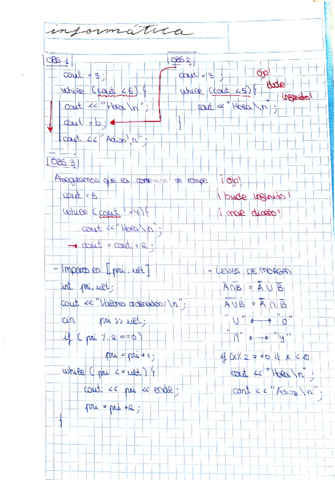 informática
OBS 1
cout = 3;
while (cout < 5) {
cout << "Hola \n";
cout = 6;
cout << "Adios! \n";
OBS 2
cout = 3;
while (cout < 5) {
cout << "Hola \n";
}
¡ojo!
bucle
infinito!
OBS 3
Aseguramos que es condición se rompe
cout = 3
while (cout != 4) {
cout << "Hola \n";
→ cout = cout + 2;
¡ojo!
¡bucle infinito!
- Impares en [pri, ult]
int pri, ult;
cout << "Valores ordenados: \n";
cin pri >> ult;
if ( pri % 2 == 0)
pri = pri + 1;
while ( pri <= ult) {
cout << pri << endl;
pri = pri + 2;
}
- LEYES DE MORGAN
"U" ↔ "O"
"∩" ↔ "Y"
cout << "Hola \n";
cout << "Adios \n";